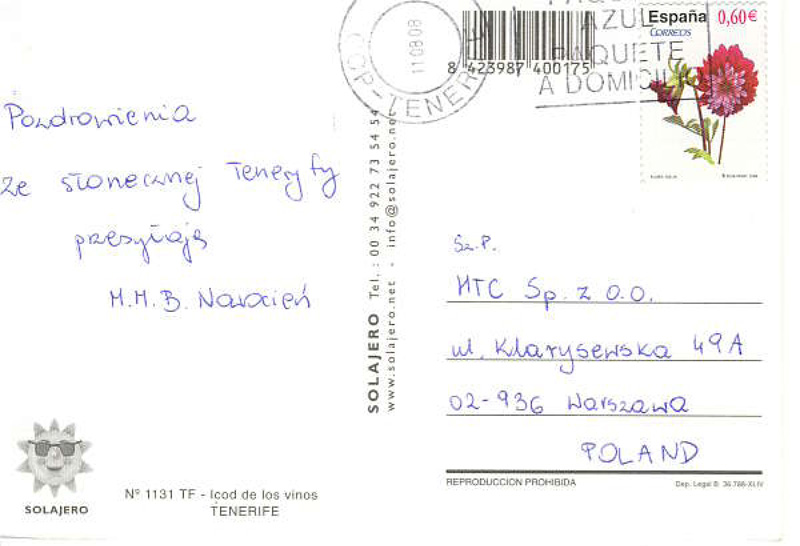 Pozdrowienia
ze słonecznej Teneryfy
przesyłają
M.M.B.
SOLAJERO
Nº 1131 TF - Icod de los vinos
TENERIFE
SOLAJERO Tel.: 00 34 922 73 54 54
www.solajero.net - info@solajero.net
TENER
11 08 08
8 423987 400175
AZUL
PAQUETE
A DOMICILI
España 0,60€
CORREOS
Sz.P.
MTC Sp. z o.o.
ul. Klarysewska 49A
02-936 Warszawa
POLAND
REPRODUCCION PROHIBIDA
Dep. Legal B. 36.786-XLIV